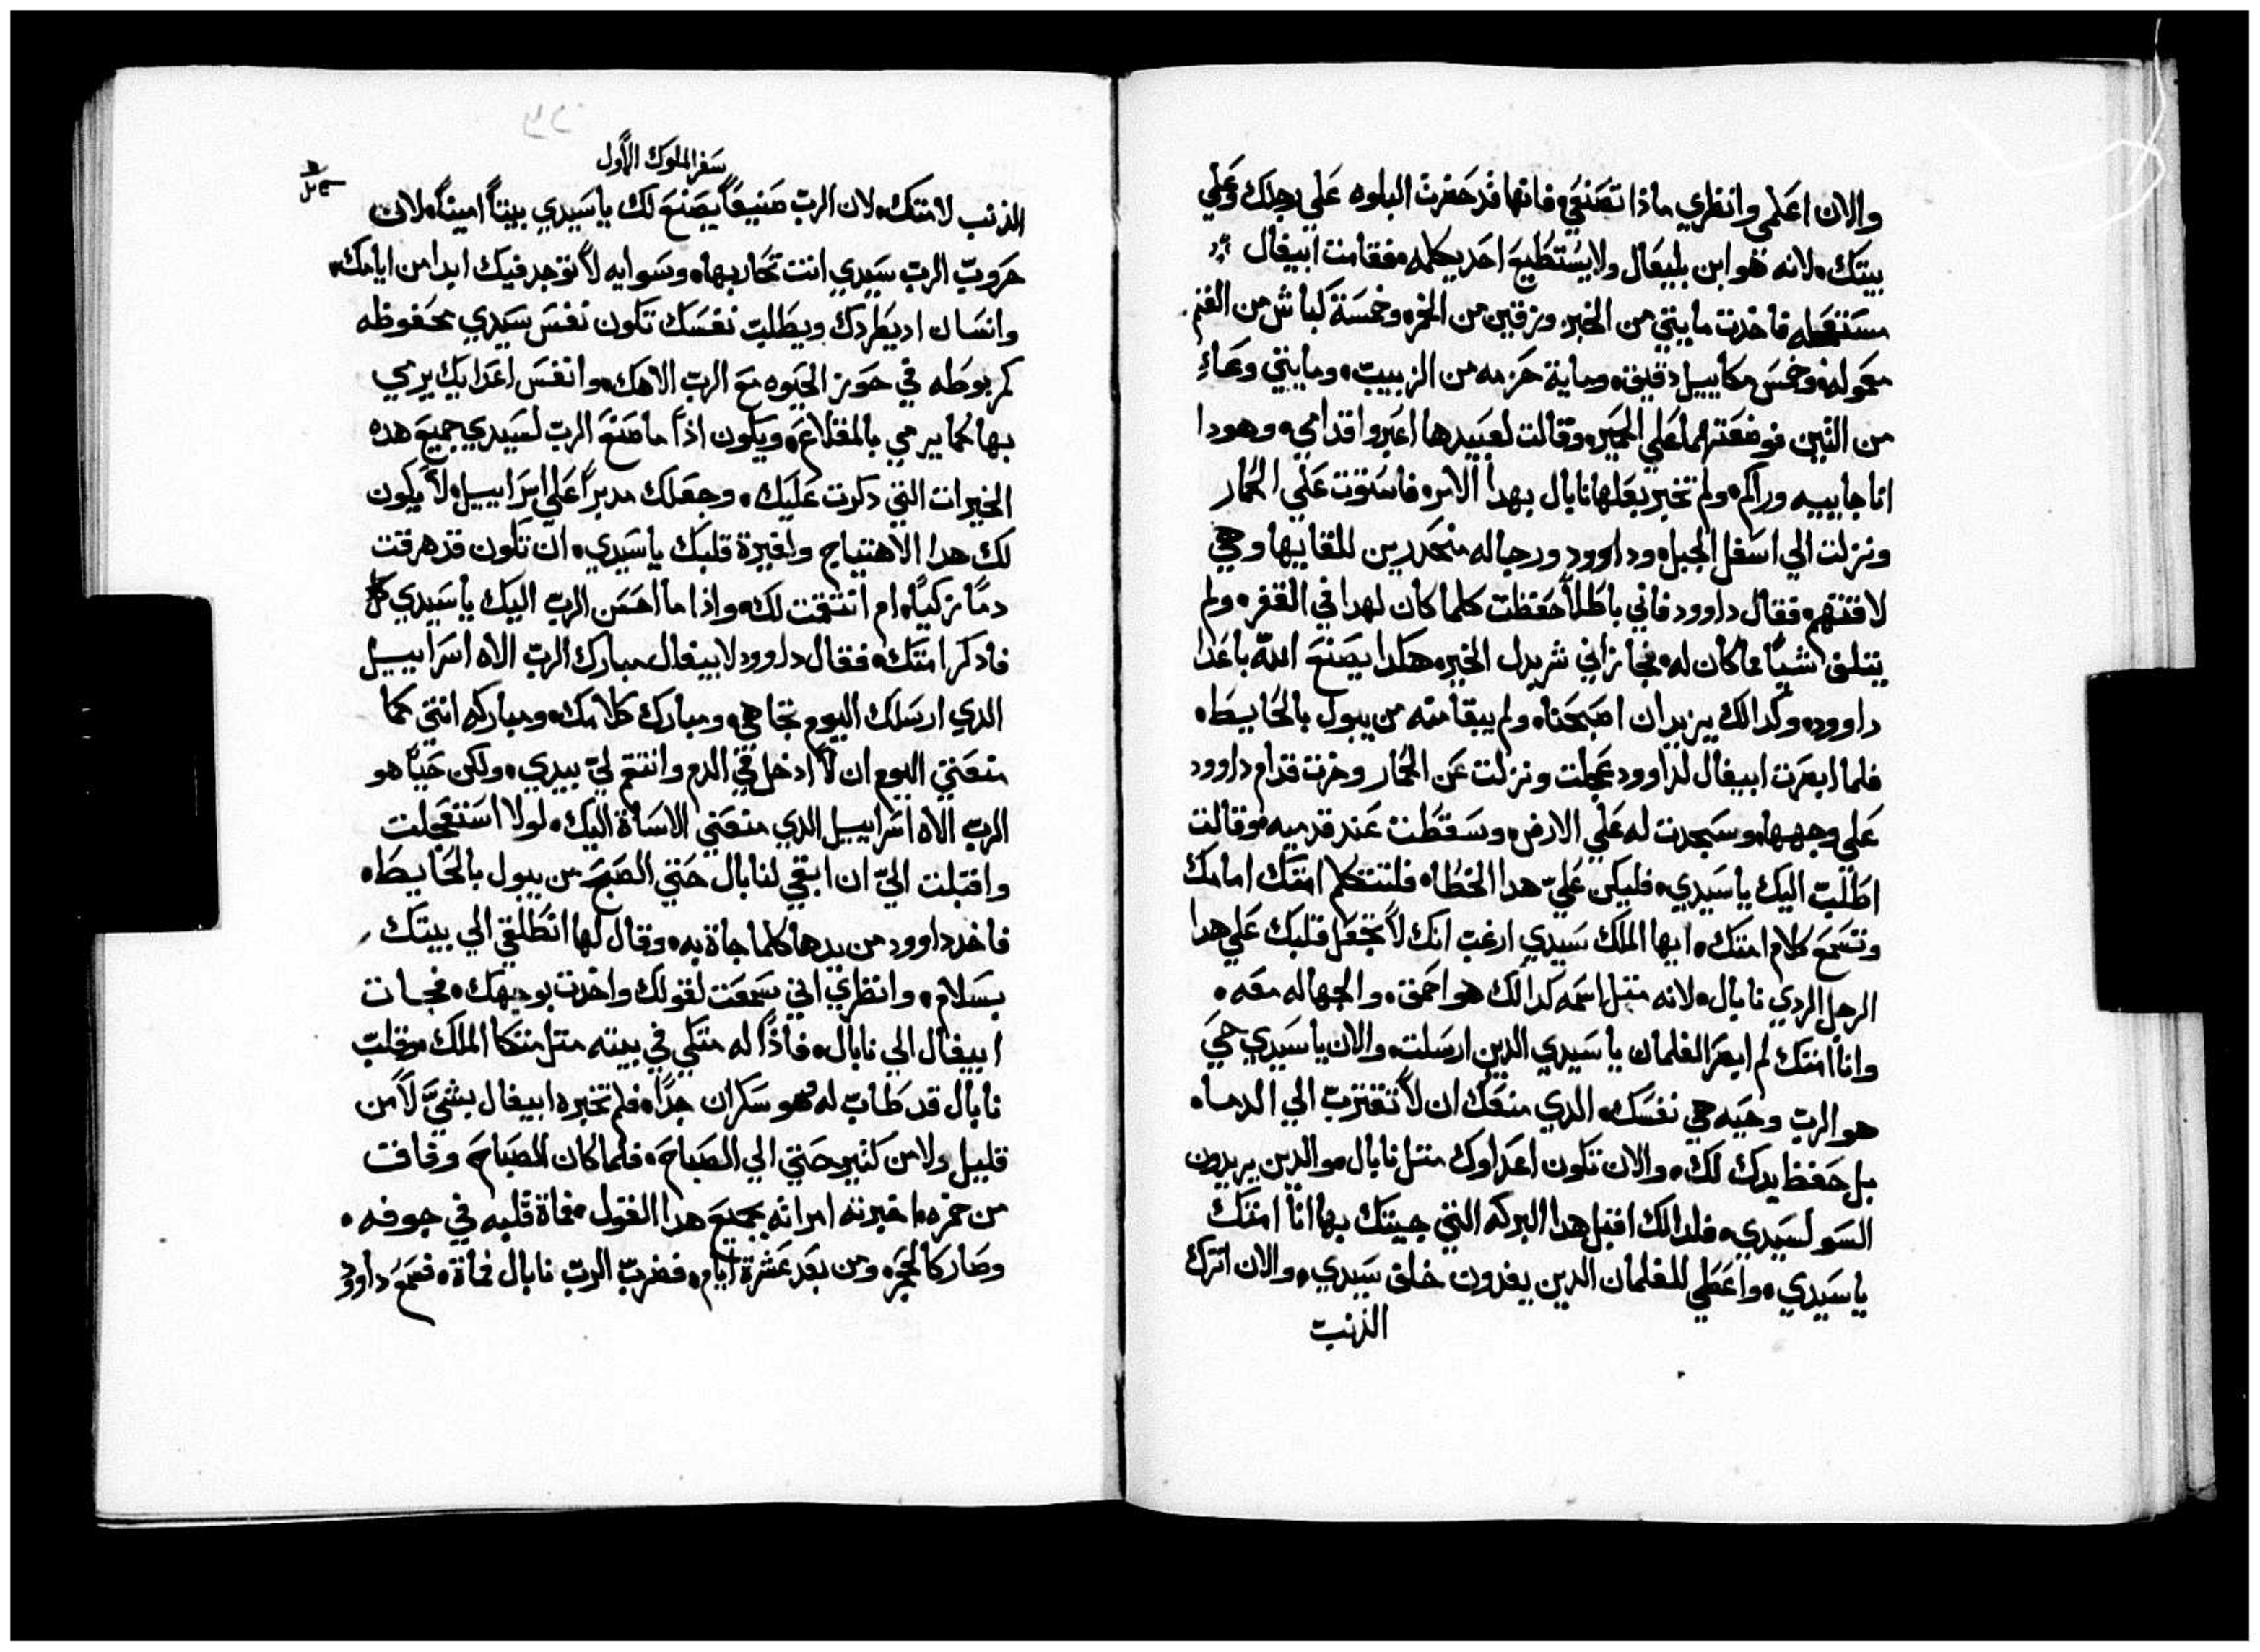 والان اعلمي وانظري ماذا تصنعي فانها قد حضرت البلوه علي رجلك وعلي
بيتك، لانه هو ابن بليعال ولا يستطيع احد يكلمه، فقامت ابيغال
مستعجله فاخدت مايتي من الخبز وزقين من الخمر، وخمسة كباش من الغنم
معموله، وخمس مكاييل دقيق، وماية حزمه من الزبيب، ومايتي وعاءٍ
من التين فوضعتهما علي الحمير، وقالت لعبيدها اعبروا قدامي، وهودا
انا جاييه وراكم، ولم تخبر بعلها نابال بهدا الامر، فاستوت علي الحمار
ونزلت الي اسفل الجبل، وداوود ورجاله منحدرين للقايها وهي
لاقتهم، فقال داوود فاني باطلاً حفظت كلما كان لهدا في القفر، ولم
يتلف شياً مما كان له، فجازاني شر بدل الخير، هكدا يصنع الله باعدا
داوود، وكدالك يزيد ان اصبحنا، ولم يبقا منه من يبول بالحايط،
فلما ابصرت ابيغال لداوود عجلت ونزلت عن الحمار وخرت قدام داوود
علي وجهها، وسجدت له علي الارض، وسقطت عند قدميه، وقالت
اطلب اليك ياسيدي، فليكن عليّ هدا الخطا، فلتتكلم امتك امامك
وتسمع كلام امتك، ايها الملك سيدي ارغب انك لا تجعل قلبك علي هدا
الرجل الردي نابال، لانه متل اسمه كدالك هو احمق، والجهاله معه،
وانا امتك لم ابصر الغلمان ياسيدي الدين ارسلت، والان ياسيدي حي
هو الرب وحيه هي نفسك، الدي منعك ان لا تقترب الي الدما،
بل حفظ يدك لك، والان تكون اعداوك متل نابال، والدين يريدون
السو لسيدي، فلدالك اقبل هدا البركه التي جيتك بها انا امتك
ياسيدي، واعطي للغلمان الدين يغدون خلف سيدي، والان اترك
الذنب
سفر الملوك الاول
الذنب لامتك، لان الرب صنيعاً يصنع لك ياسيدي بيتاً اميناً، لان
حروب الرب سيدي انت تحاربها، وسوايه لا توجد فيك ابدا من ايامك،
وانسان اد يطردك ويطلب نفسك تكون نفس سيدي محفوظه
كمربوطه في حوز الحيوه مع الرب الاهك، وانفس اعدايك يرمي
بها كما يرمي بالمقلاع، ويكون اذا ما صنع الرب لسيدي جميع هده
الخيرات التي دكرت عليك، وجعلك مدبراً علي اسراييل، لا يكون
لك هدا الاهتياج ولغيرة قلبك ياسيدي، ان تكون قد هرقت
دماً زكياً، ام انتقمت لك، واذا ما احسن الرب اليك ياسيدي
فادكر امتك، فقال داوود لابيغال مبارك الرب الاه اسراييل
الدي ارسلك اليوم تجاهي، ومبارك كلامك، ومباركه انتي كما
منعتني اليوم ان لا ادخل في الدم وانتقم لي بيدي، ولكن حياً هو
الرب الاه اسراييل الدي منعني الاساة اليك، لولا استعجلت
واقبلت اليّ ان ابقي لنابال حتي الصبح من يبول بالحايط،
فاخد داوود من يدها كلما جاة به، وقال لها انطلقي الي بيتك
بسلام، وانظري اني سمعت لقولك واخدت بوجهك، فجات
ابيغال الي نابال، فاذا له متكي في بيته متل متكا الملك، وقلب
نابال قد طاب له وهو سكران جداً، فلم تخبره ابيغال بشي لا من
قليل ولا من كتير حتي الي الصباح، فلما كان الصباح وفاقت
من خمره اخبرته امراته بجميع هدا القول، فماة قلبه في جوفه،
وصار كالحجر، ومن بعد عشرة ايام، فضرب الرب نابال فماة، فسمع داوود